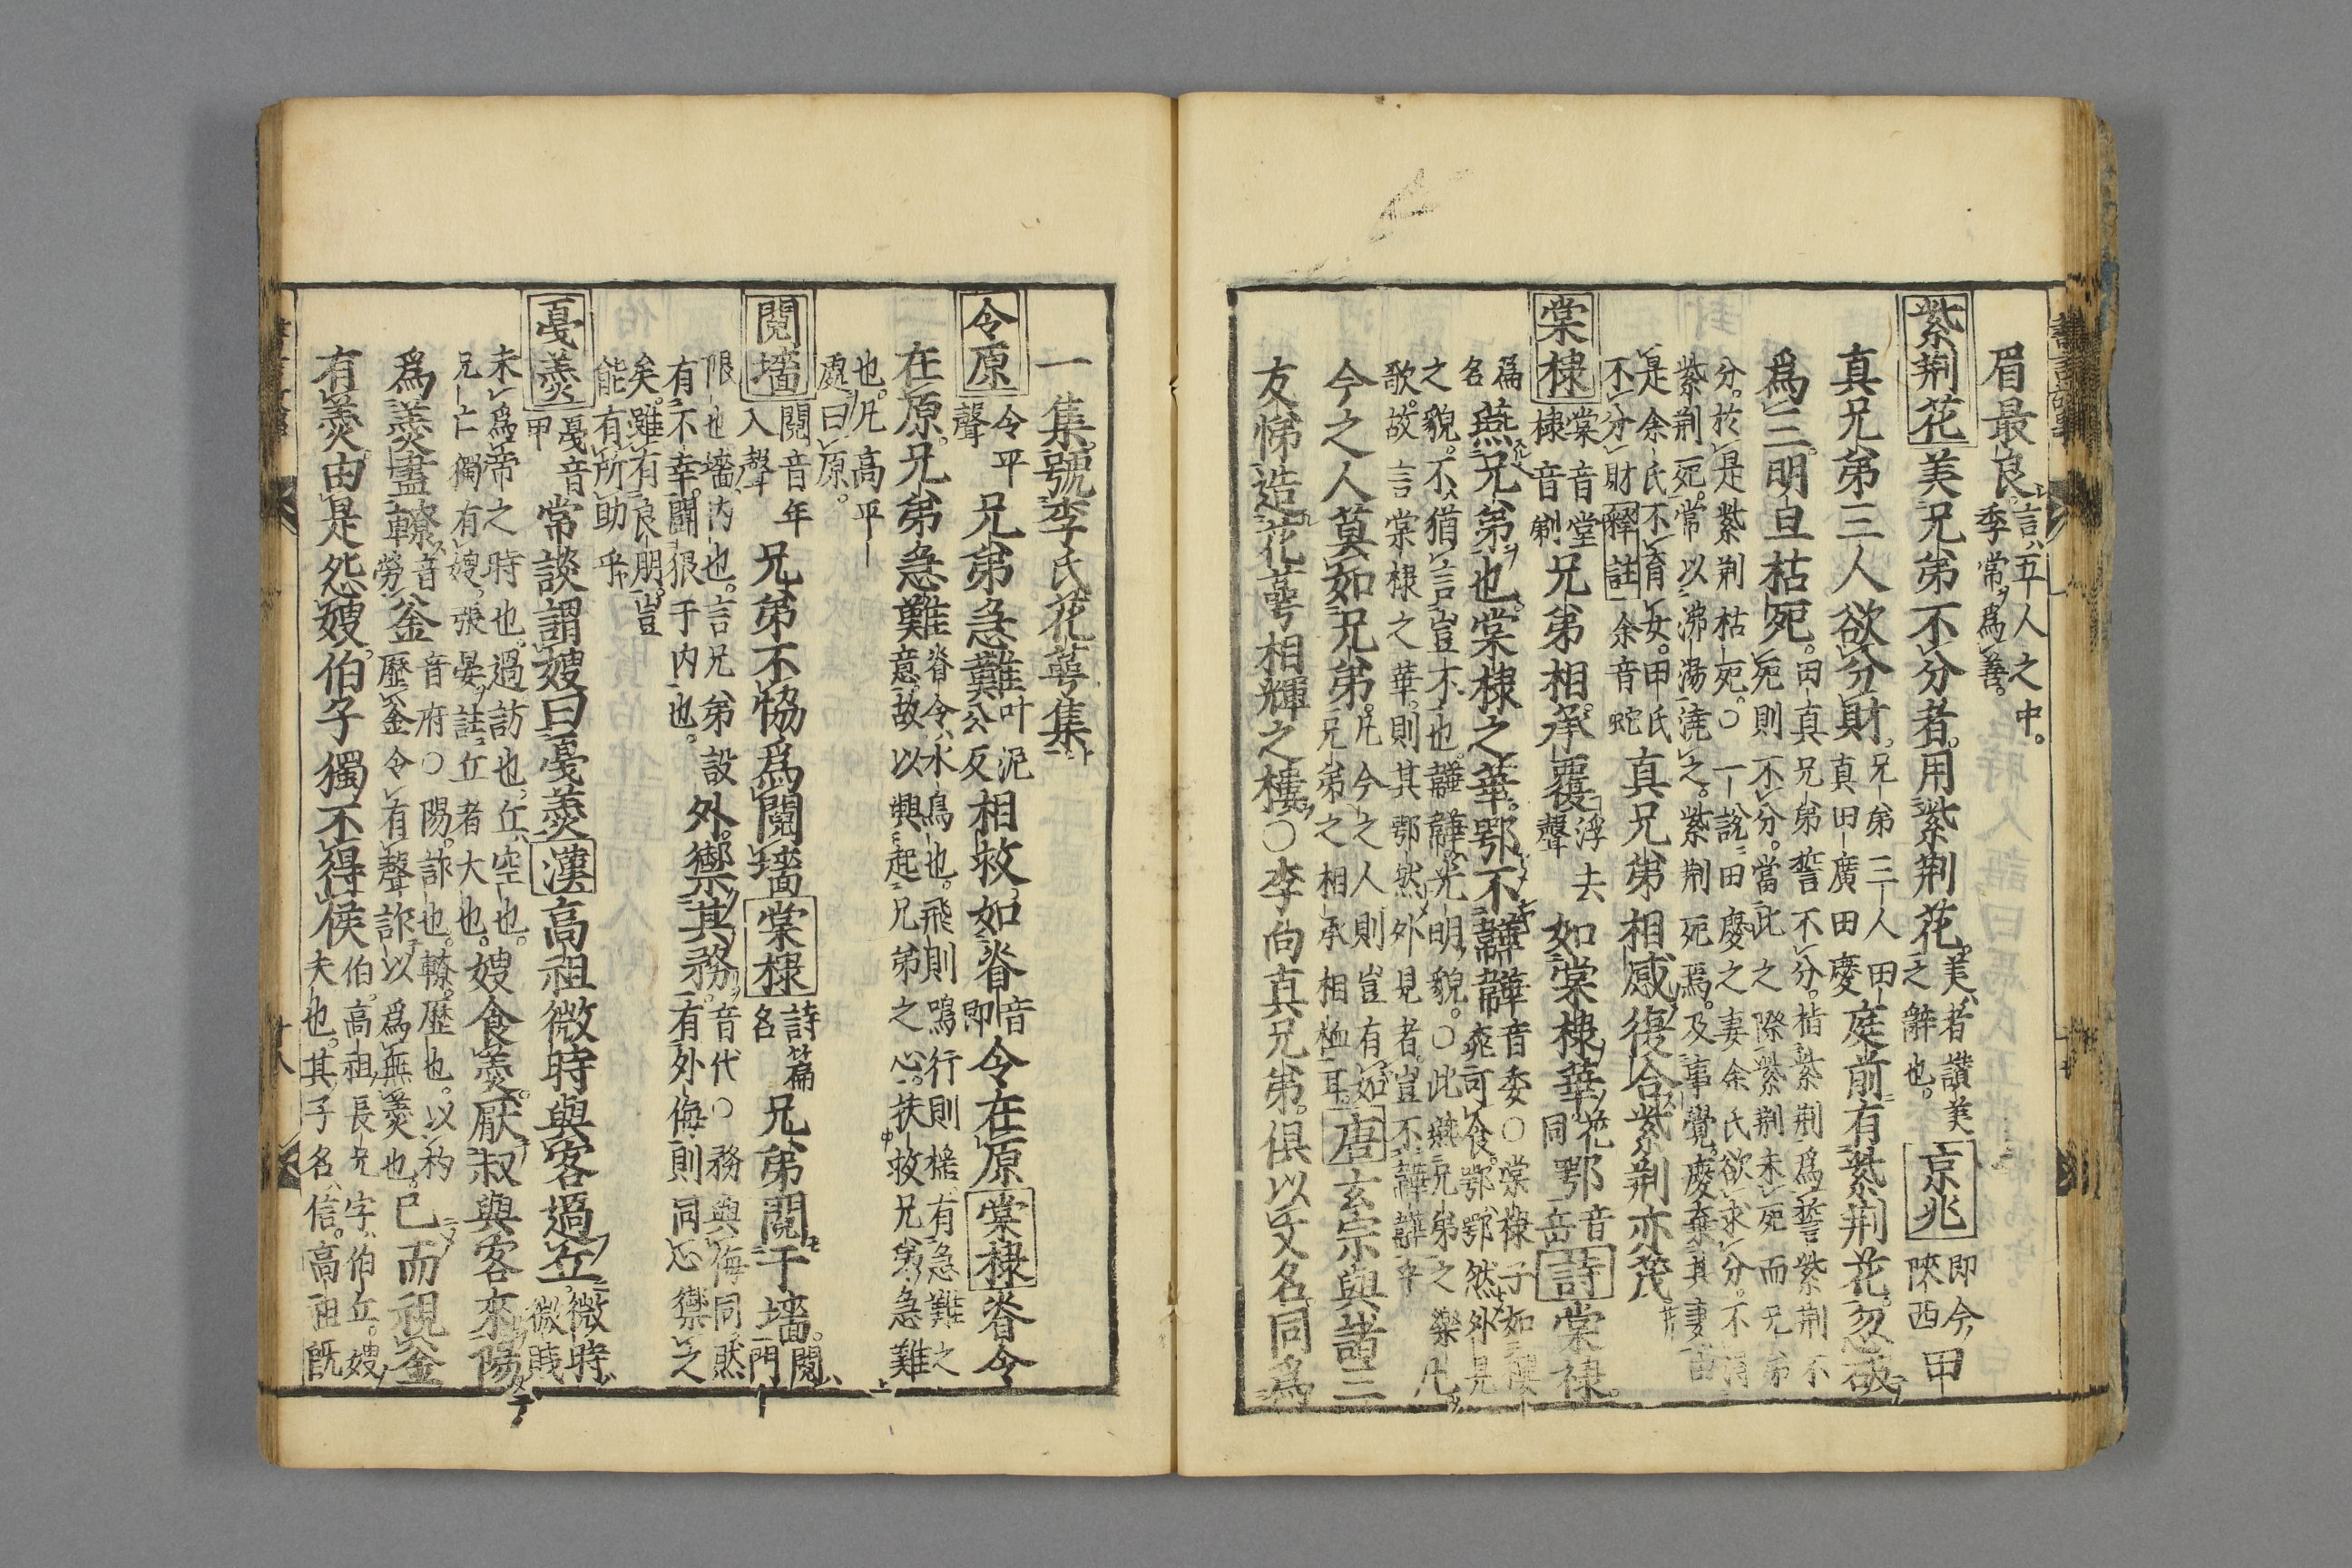 眉最良言五人之中。季常爲善。
紫荆花美兄弟不分者。用紫荆花。美者讃美之辭也。京兆即今陜西甲
真兄弟三人欲分財。兄弟三人田真田廣田慶庭前有紫荆花。忽破
爲三。明旦枯死。田真兄弟誓不分。指紫荆爲誓紫荆不死則不分。當此之際紫荆未死而兄弟
分。於是紫荆枯死。○一說田慶之妻余氏欲求分。不得
紫荆死。常以沸湯澆之。紫荆死焉。及事覺。慶棄其妻
是余氏不育女。甲氏不分財釋註余音蛇真兄弟相感復合紫荆亦茂
棠棣棠音堂棣音剃兄弟相承。覆浮去聲如棠棣華花同鄂音岳詩棠棣
篇名燕兄弟也。棠棣之華。鄂不韡韡音委○棠棣子如櫻可食。鄂鄂然外見
之貌。不猶言豈不也。韡韡光明貌。○此燕兄弟之樂
歌。故言棠棣之華。則其鄂然外見者。豈不韡韡乎凡
今之人莫如兄弟。凡今之人則豈有如兄弟之相承相恤耳。唐玄宗與諸王
友悌造花萼相輝之樓。○李向真兄弟。俱以文名同爲
一集。號李氏花萼集
令原令平聲兄弟急難叶泥公反相救如脊音即令在原棠棣脊令
在原。兄弟急難脊令水鳥也。飛則鳴行則搖有急難之意。故以興起兄弟之心。扶救兄弟急難
也。凡高平處曰原。
鬩墻鬩音年入聲兄弟不恊爲鬩墻棠棣詩篇名兄弟鬩于墻。鬩鬥
恨也墻内也。言兄弟設外禦其務。音代○務與侮同然
有不幸。鬪狠于内也。有外侮則同心禦之
矣。雖有良朋豈能有所助乎
戞羹戞音甲常談謂嫂曰戞羹漢高祖微時與客過丘微時微賤
未爲帝之時也。過訪也。丘空也。兄亡獨有嫂。張晏註丘者大也。嫂食羹。厭叔與客來陽
爲羹盡轑音勞釜音府○陽。詐也。轑。歷也。以杓歷釜令有聲詐以爲無羹也。已而視釜
有羹由是怨嫂。伯子獨不得侯伯。高祖長兄字伯丘。嫂夫也。其子名信。高祖既